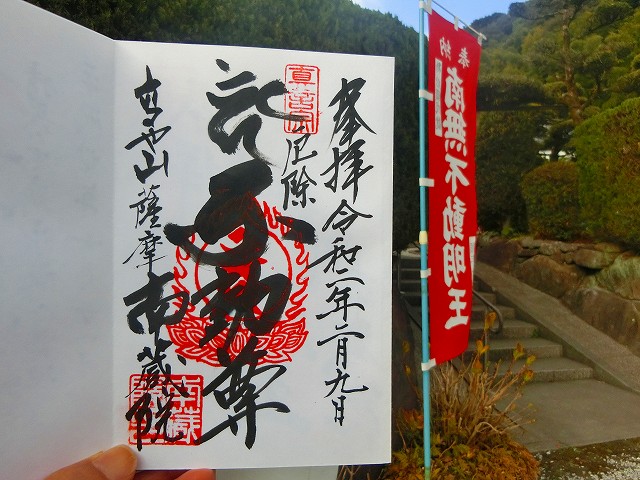 奉拝 令和二年二月九日
真言宗
厄除
不動尊
高野山 薩摩 南蔵院
奉納
南無不動明王